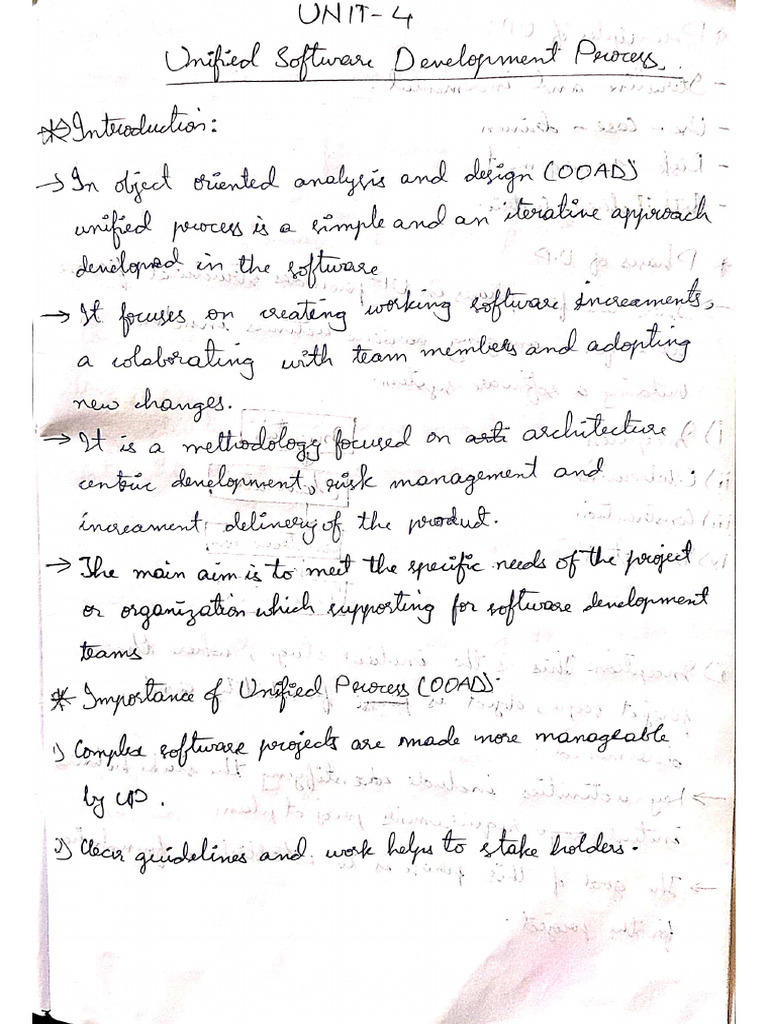 UNIT-4
Unified Software Development Process.
* Introduction:
→ In object oriented analysis and design (OOAD)
unified process is a simple and an iterative approach
developed in the software
→ It focuses on creating working software increaments,
a colaborating with team members and adopting
new changes.
→ It is a methodology focused on arti architecture
centric development, risk management and
increament delivery of the product.
→ The main aim is to meet the specific needs of the project
or organization which supporting for software development
teams
* Importance of Unified Process (OOAD).
1) Complex software projects are made more manageable
by UP.
2) Clear guidelines and work helps to stake holders.